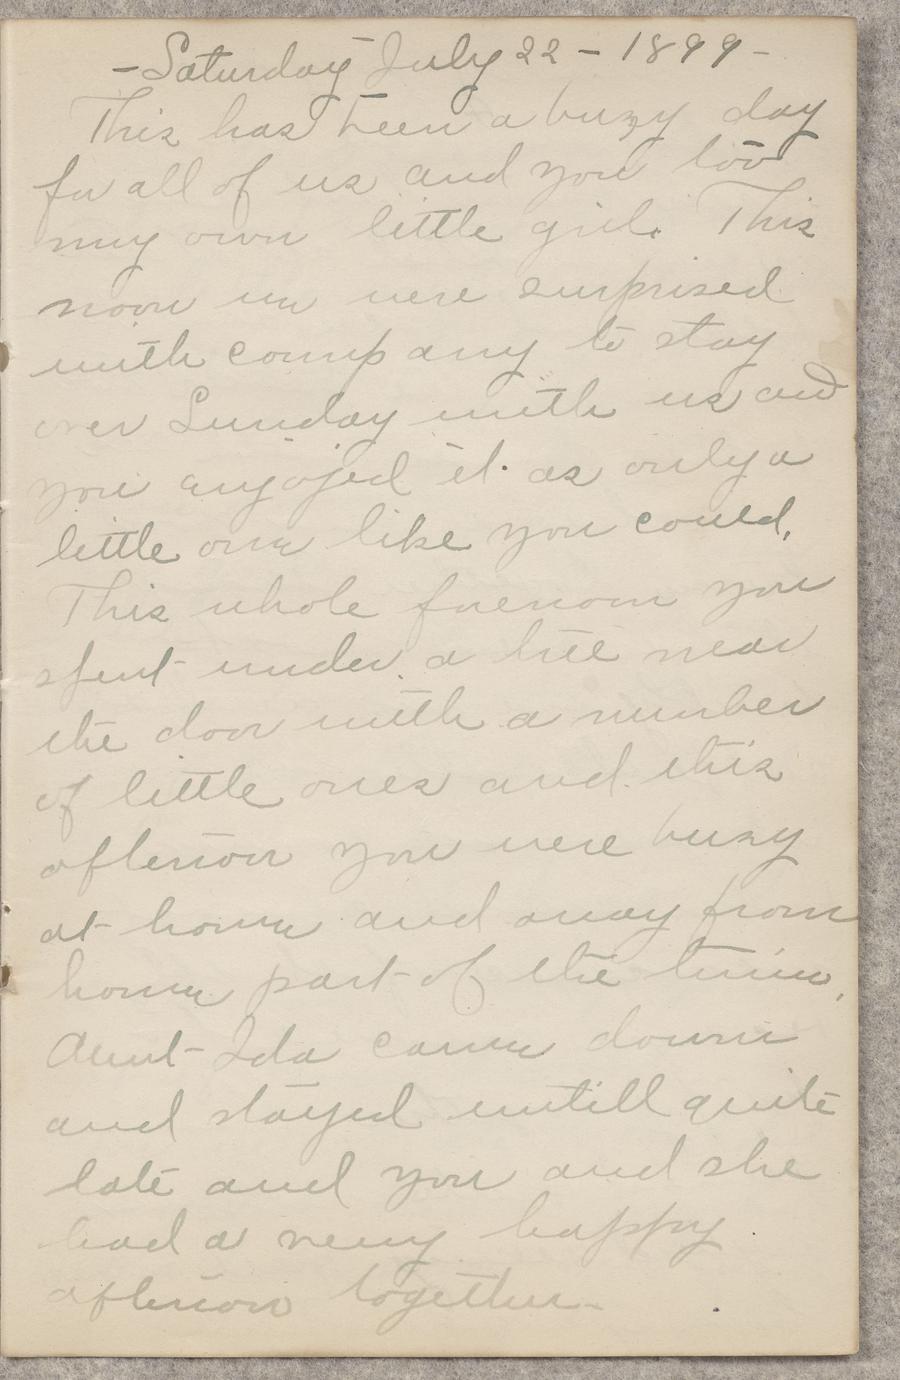 - Saturday July 22 - 1899 -
This has been a buzy day
for all of us and you too
my own little girl. This
noon we were surprised
with company to stay
over Sunday with us and
you anjojed it as only a
little one like you could.
This whole forenoon you
spent under a tree near
the door with a number
of little ones and this
afternoon you were buzy
at home and away from
home part of the time.
Aunt Ida came down
and stayed untill quite
late and you and she
had a very happy
afternoon together -